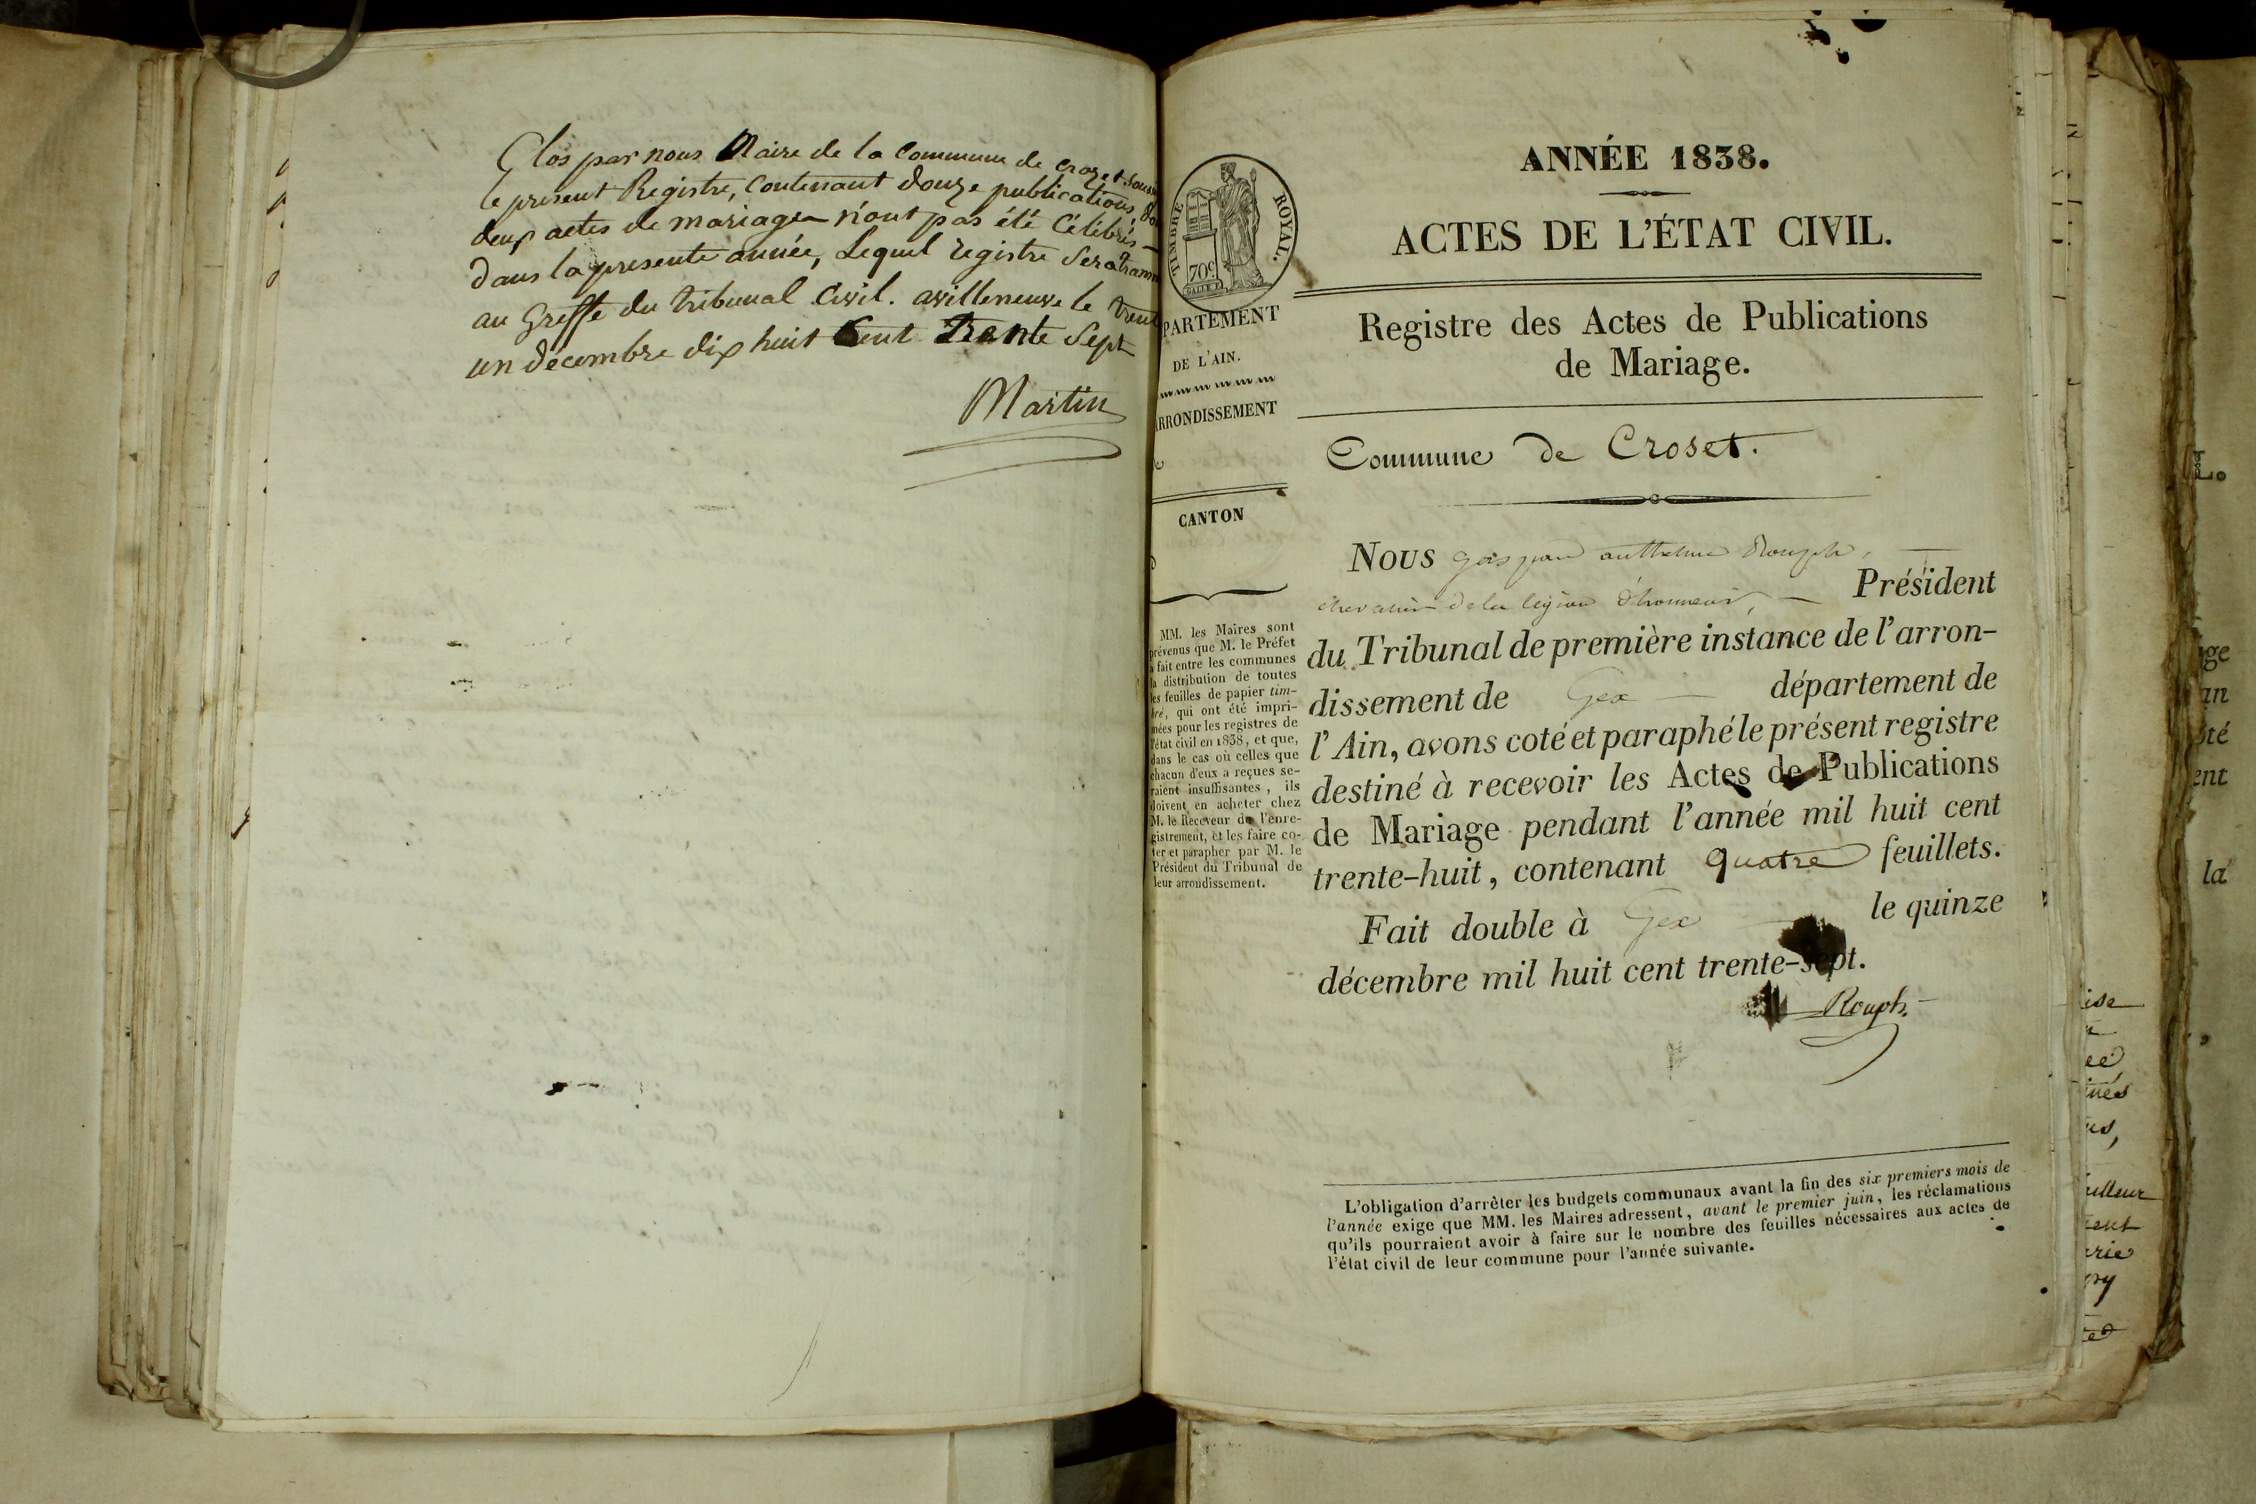 Clos par nous Maire de la Commune de Crozet
le present Registre, Contenant douze publications,
deux actes de mariage n'ont pas été Célébrés
dans la presente année, Lequel registre Sera
au Greffe du tribunal Civil. avilleneuve le
un décembre dix huit Cent Trente Sept
Martin
TIMBRE ROYAL.
70c
PARTEMENT
DE L'AIN.
RRONDISSEMENT
CANTON
MM. les Maires sont
prévenus que M. le Préfet
a fait entre les communes
la distribution de toutes
les feuilles de papier tim-
bré, qui ont été impri-
mées pour les registres de
l'état civil en 1838, et que,
dans le cas où celles que
chacun d'eux a reçues se-
raient insuffisantes, ils
doivent en acheter chez
M. le Receveur de l'enre-
gistrement, et les faire co-
ter et parapher par M. le
Président du Tribunal de
leur arrondissement.
ANNÉE 1838.
ACTES DE L'ÉTAT CIVIL.
Registre des Actes de Publications
de Mariage.
Commune de Croset.
Nous gaspard anthelme Rouph,
chevalier de la légion d'honneur, Président
du Tribunal de première instance de l'arron-
dissement de Gex département de
l'Ain, avons coté et paraphé le présent registre
destiné à recevoir les Actes de Publications
de Mariage pendant l'année mil huit cent
trente-huit, contenant quatre feuillets.
Fait double à Gex le quinze
décembre mil huit cent trente-sept.
Rouph.
L'obligation d'arrêter les budgets communaux avant la fin des six premiers mois de
l'année exige que MM. les Maires adressent, avant le premier juin, les réclamations
qu'ils pourraient avoir à faire sur le nombre des feuilles nécessaires aux actes de
l'état civil de leur commune pour l'année suivante.